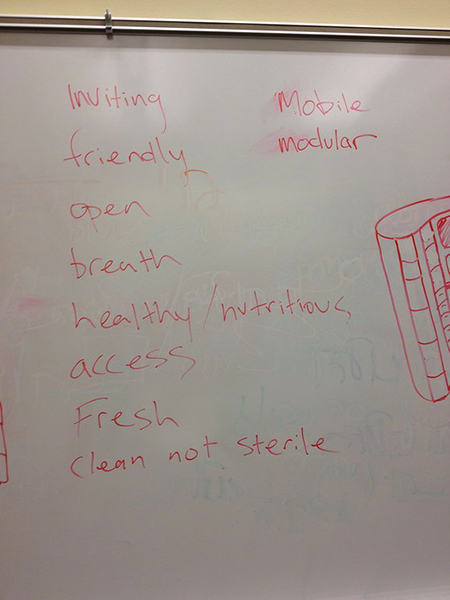 Inviting
friendly
open
breath
healthy/nutritious
access
Fresh
clean not sterile
Mobile
modular